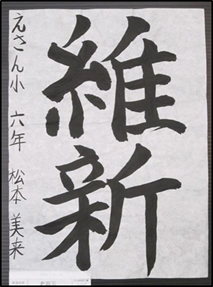 維新
えさん小 六年 松本 美来